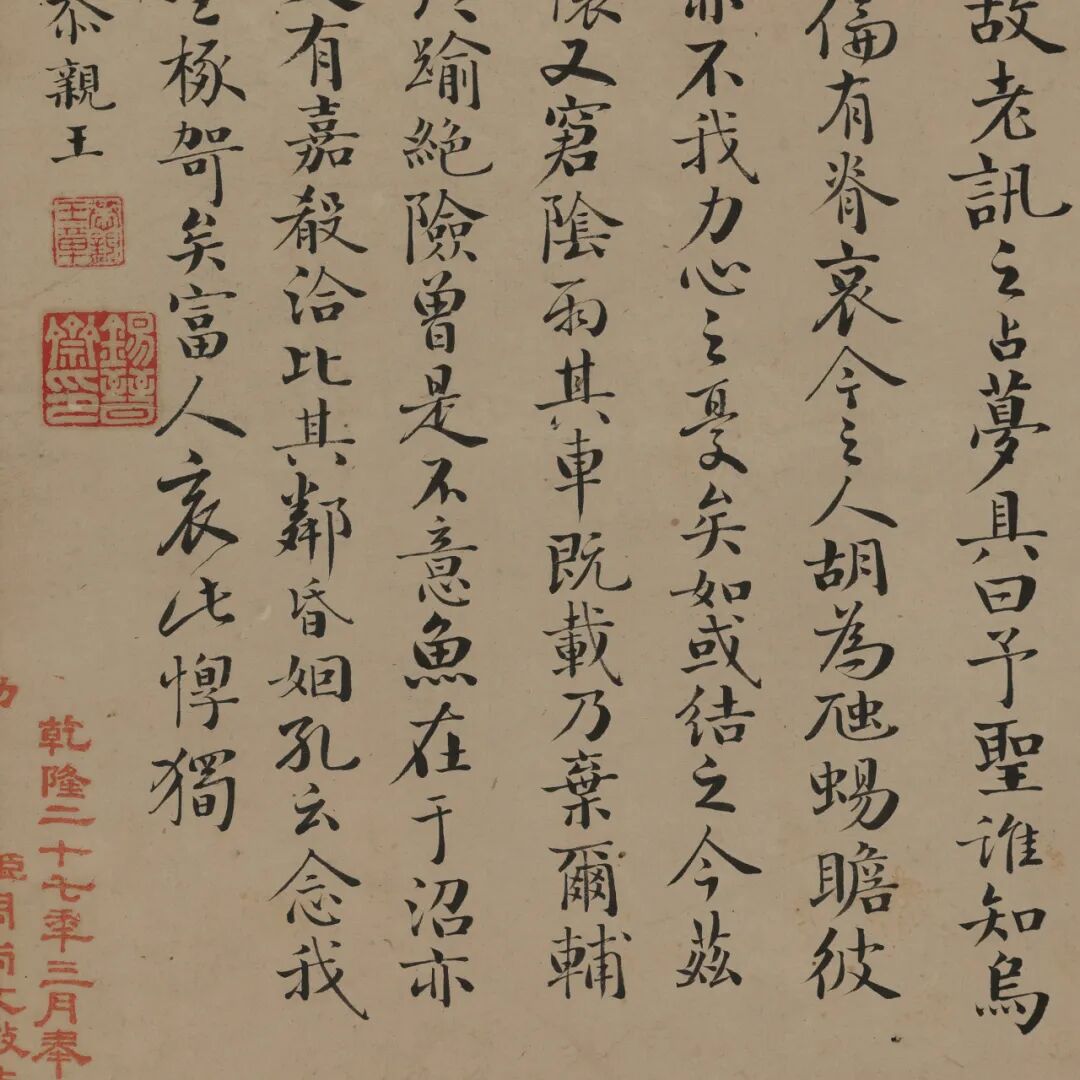 故老訊之占夢具曰予聖誰知烏
倫有脊哀今之人胡為虺蜴瞻彼
亦不我力心之憂矣如或結之今茲
懷又窘陰雨其車既載乃棄爾輔
踰絕險曾是不意魚在于沼亦
有嘉殽洽比其鄰昏姻孔云念我
椓哿矣富人哀此惸獨
恭親王
恭親王章
錫晉齋印
乾隆二十七年三月奉
臣周尚文